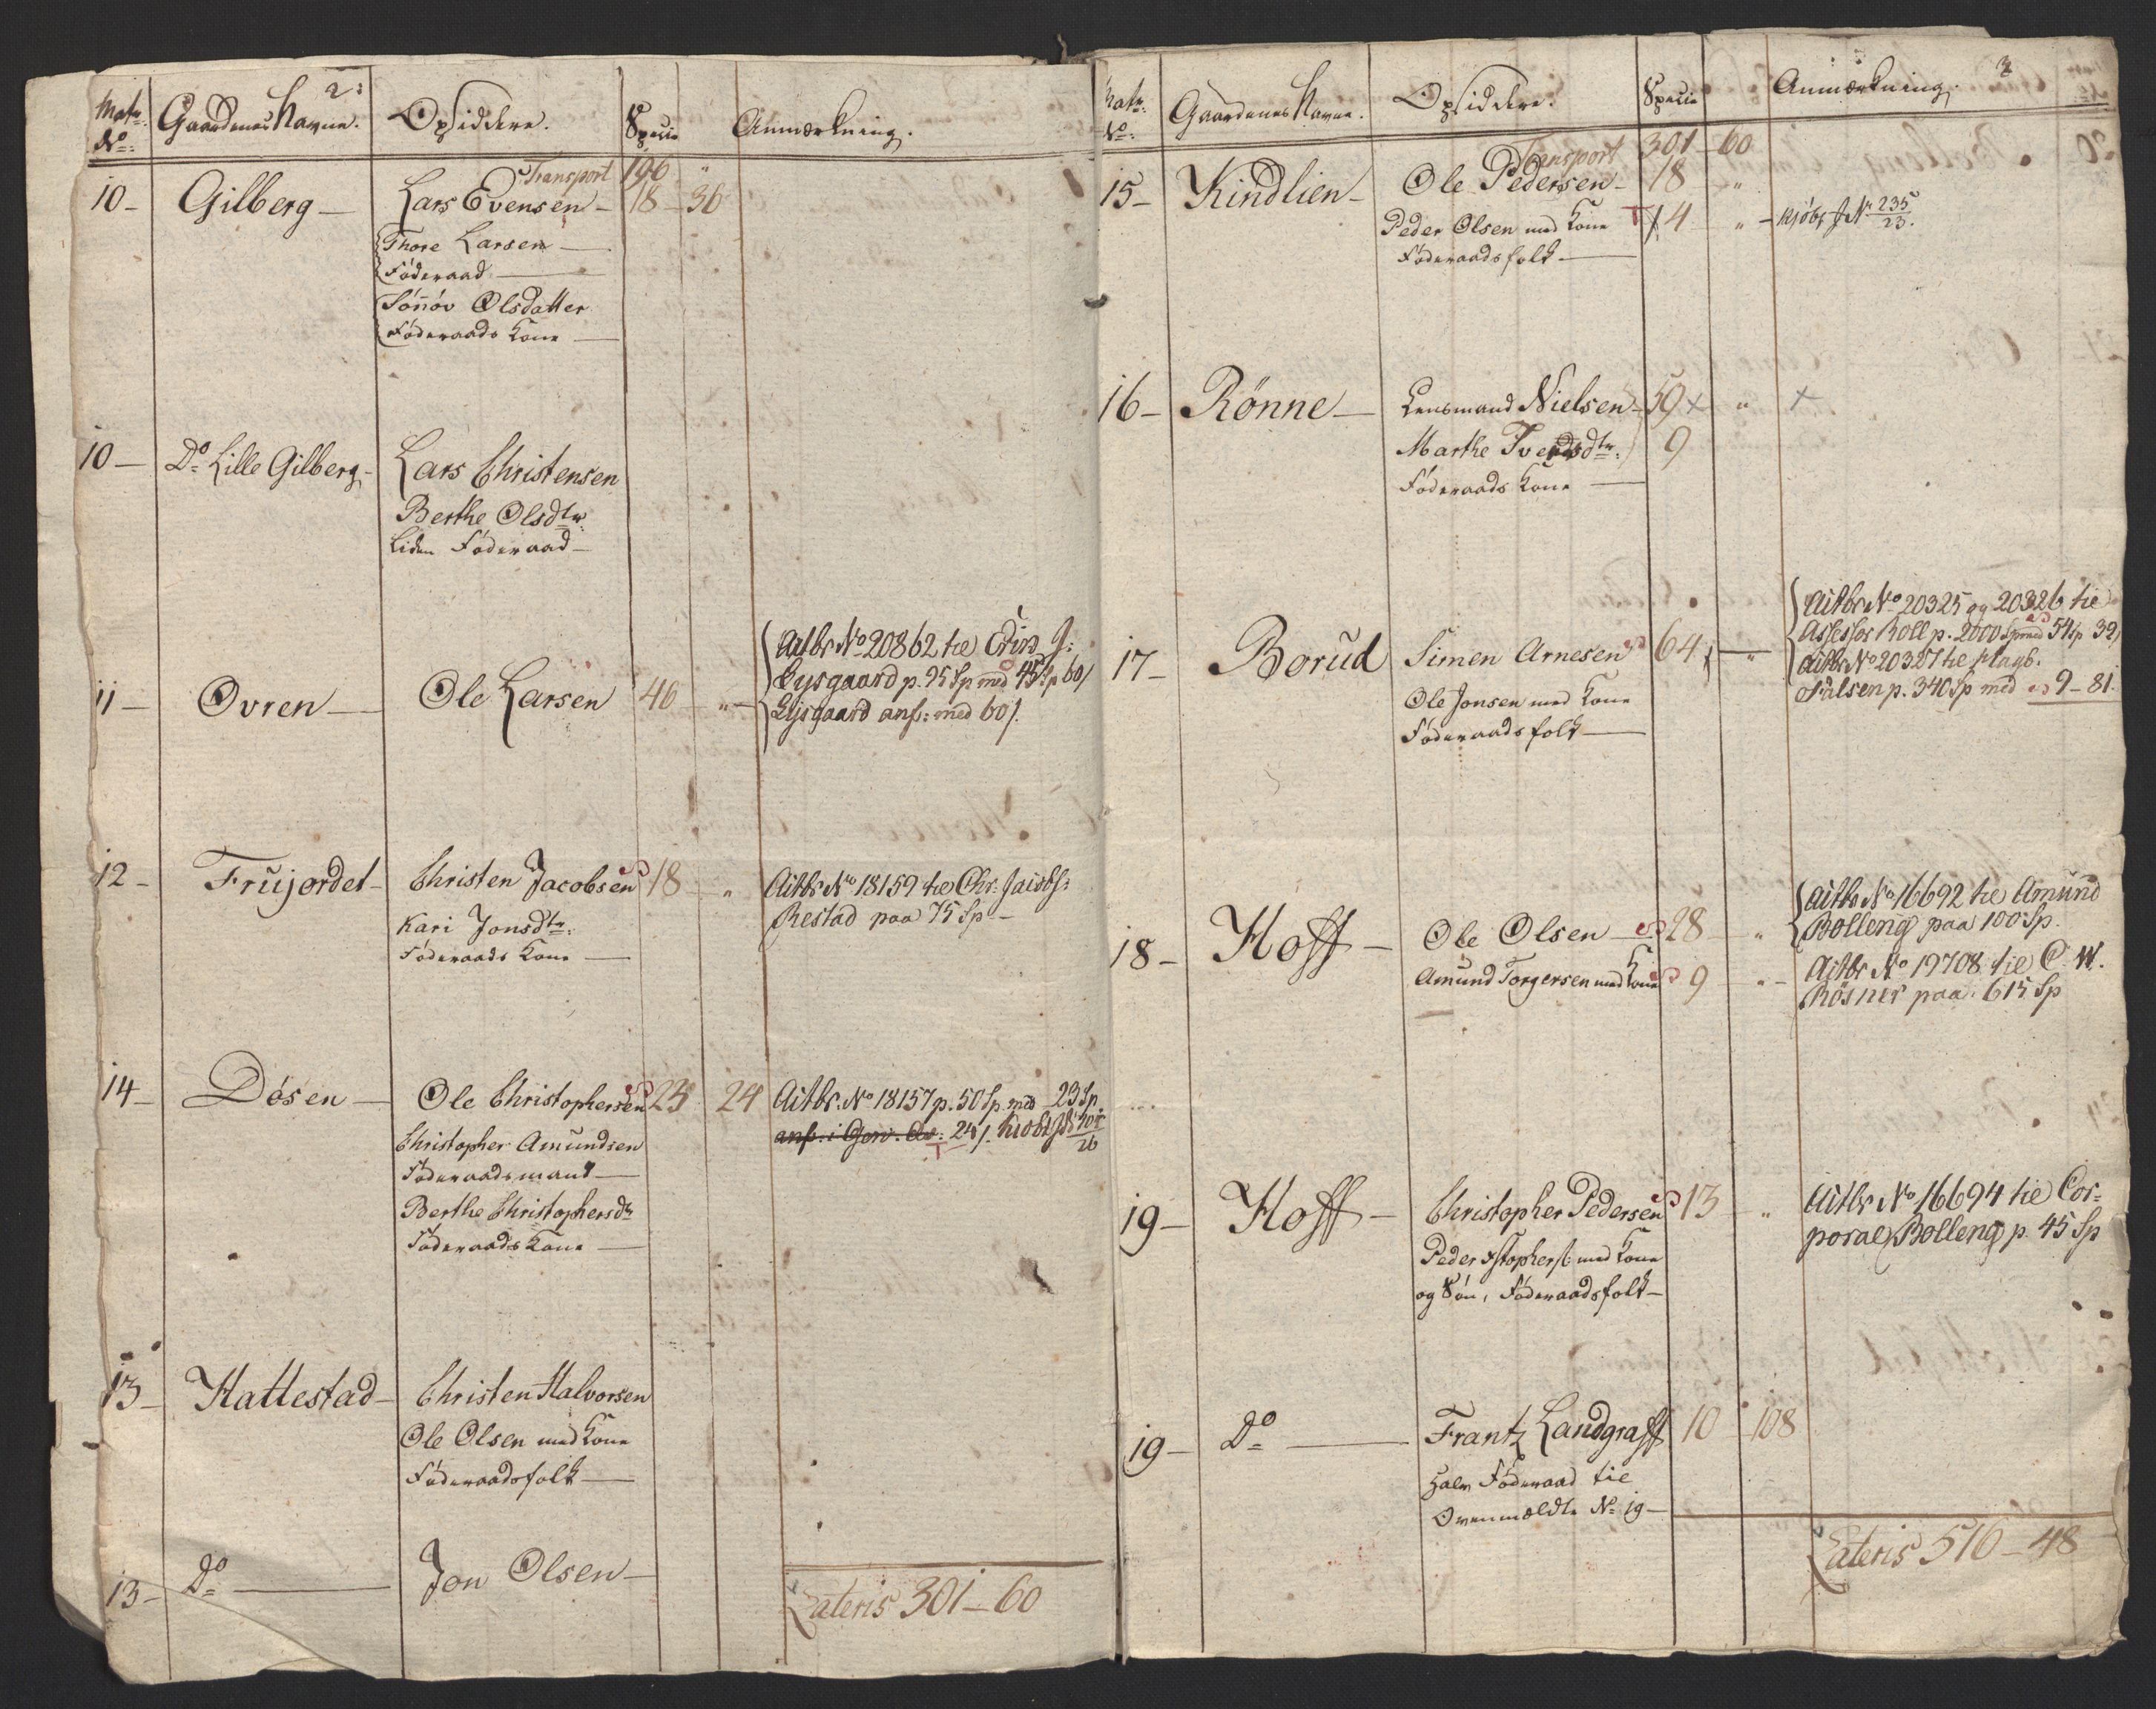 2:
Matr: No: Gaardenes Navne. Opsiddere. Specie Anmærkning.
Transport 196 "
10 - Gilberg - Lars Evensen - 18 - 36
Thore Larsen -
Föderaad -
Sönöv Olsdatter
Föderaads Kone -
10 - Do Lille Gilberg - Lars Christensen
Berthe Olsdtr:
Liden Föderaad -
Aitbr No 20862 til
11 - Ovren - Ole Larsen 46 " - Lysgaard p. 95 Sp med 45 Sp 60/
Lysgaard ans: med 60/.
12 - Frujordet - Christen Jacobsen 18 - " Aitbr No 18159 til Chr: Jacobs:
Kari Jonsdtr: Restad paa 75 Sp -
Föderaads Kone -
14 - Dösen - Ole Christophersen 23 24 Aitbr. No 18157 p. 50 Sp med 23 Sp.
Christopher Amundsen 24/.
Föderaadsmand -
Berthe Christophersdtr
Föderaads Kone -
13 - Hattestad - Christen Halvorsen
Ole Olsen med Kone
Föderaadsfolk -
13 - Do - Jon Olsen -
Lateris 301 - 60
3
Matr: No: Gaardenes Navne. Opsiddere. Specie Anmærkning.
Transport 301 - 60
15 - Kindlien - Ole Pedersen - 18 "
Peder Olsen med Kone 14 " - Kjöbs J No 235/23.
Föderaadsfolk -
16 - Rönne - Lensmand Nielsen - 59 x " x
Marthe dtr: 9
Föderaads Kone -
Aitbr No 20325 og 20326 til
17 - Borud Simen Arnesen 64 - " Assessor Roll p. 2000 Sp med 54 Sp 39/
Ole Jonsen med Kone Aitbr No 20327 til
Föderaadsfolk - Nilsen p. 340 Sp med 9 - 81.
Aitbr No 16692 til Amund
18 - Hoff - Ole Olsen - 28 " Bolleng paa 100 Sp.
Amund Torgersen med Kone 9 " - Aitbr No 19708 til C. W.
Rösner paa 615 Sp
19 - Hoff - Christopher Pedersen 13 " Aitbr No 16694 til Cor-
Peder Xstophers: med Kone poral Bolleng p. 45 Sp
og Sön, Föderaadsfolk -
19 - Do - Frantz Landgraff 10 108
Halv Föderaad til
Ovenmældte No 19 -
Lateris 516 - 48